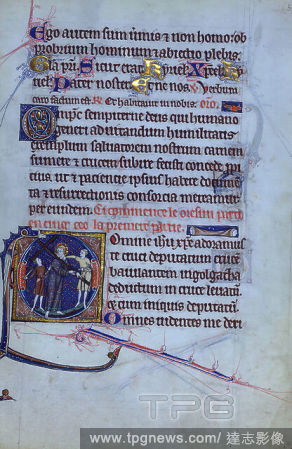 Ego autem sum ūmis et non homo: ob
probrium hominum et abiectio plebis.
Gla p̄ri. Sicut erat. Kyrieł. Xp̄eł. Ky
rieł. Pater nost. Et ne nos. V. Verbum
caro factum est. R. Et habitauit in nobis. oro.
Omp̄c sempiterne deus qui humano
generi ad imitandum humilitatis
exemplum saluatorem nostrum carnem
sumere et crucem subire fecisti concede
ut et paciencie ipsius habere documen
ta et resurrectionis consorcia mereamur
per eundem. Ci comence le
la premiere partie.
Domine ihū xp̄e adoramus
te cruci deputatum
baiulantem in golgatha
deductum in cruce leuatū.
cum iniquis deputatū.
Omnes uidentes me deri
TPG
www.tpgnews.com / 達志影像